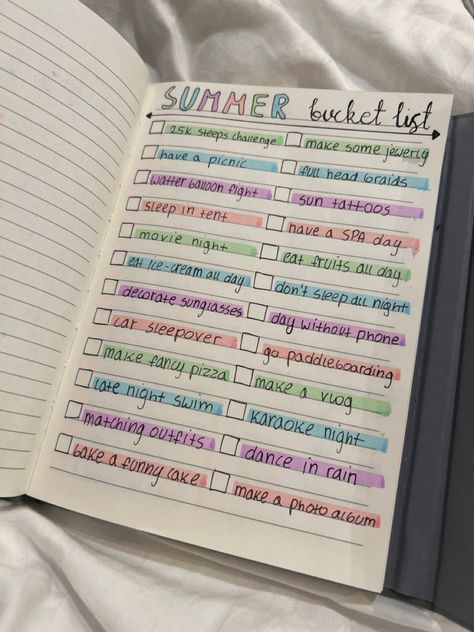 SUMMER bucket list
25K steeps challenge
make some jewerly
have a picnic
full head braids
watter balloon fight
sun tattoos
sleep in tent
have a SPA day
movie night
eat fruits all day
eat ice-cream all day
don't sleep all night
decorate sunglasses
day without phone
car sleepover
go paddleboarding
make fancy pizza
make a vlog
late night swim
karaoke night
matching outfits
dance in rain
bake a funny cake
make a photo album